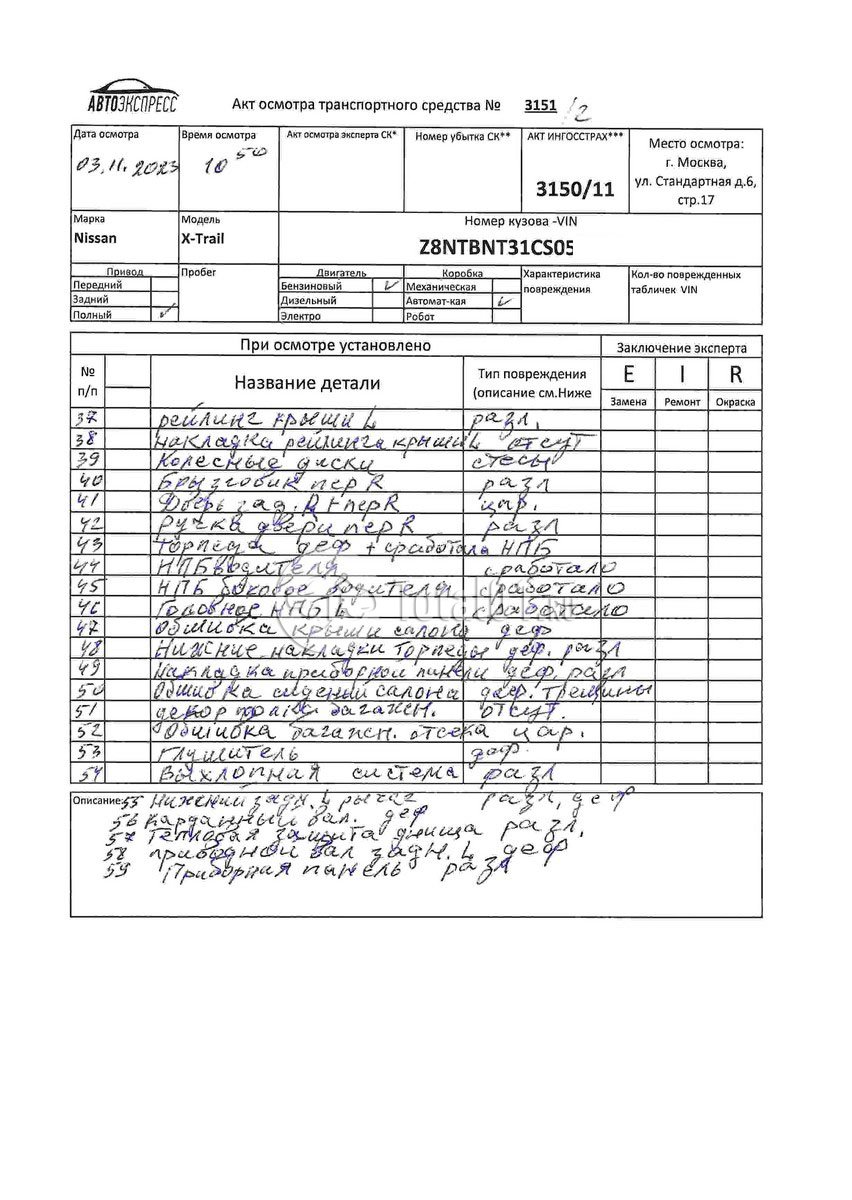 АВТОЭКСПРЕСС
Акт осмотра транспортного средства № 3151/2
Дата осмотра Время осмотра Акт осмотра эксперта СК* Номер убытка СК** АКТ ИНГОССТРАХ*** Место осмотра:
03.11.2023 10 50 3150/11 г. Москва,
ул. Стандартная д.6,
стр.17
Марка Модель Номер кузова -VIN
Nissan X-Trail Z8NTBNT31CS05
Привод Пробег Двигатель Коробка Характеристика повреждения Кол-во поврежденных табличек VIN
Передний Бензиновый ✓ Механическая
Задний Дизельный Автомат-кая ✓
Полный ✓ Электро Робот
При осмотре установлено Заключение эксперта
№ п/п Название детали Тип повреждения (описание см.Ниже E I R
Замена Ремонт Окраска
37 рейлинг крыши L разл.
38 накладка рейлинга крыши L отсут
39 Колесные диски стесы
40 Брызговик пер R разл
41 Дверь зад. R + пер R цар.
42 Ручка двери пер R разл
43 Торпеда деф + сработала НПБ
44 НПБ водителя сработало
45 НПБ боковое водителя сработало
46 Головное НПБ L сработало
47 Обшивка крыши салона деф
48 Нижние накладки торпеды деф. разл
49 Накладка приборной панели деф. разл
50 Обшивка сидений салона деф. трещины
51 декор полки багажн. отсут.
52 Обшивка багажн. отсека цар.
53 Глушитель деф.
54 Выхлопная система разл
Описание: 55 Нижений задн. L рычаг разл, деф
56 карданный вал. деф
57 Тепловая защита днища разл.
58 приводной вал задн. L деф
59 Приборная панель разл